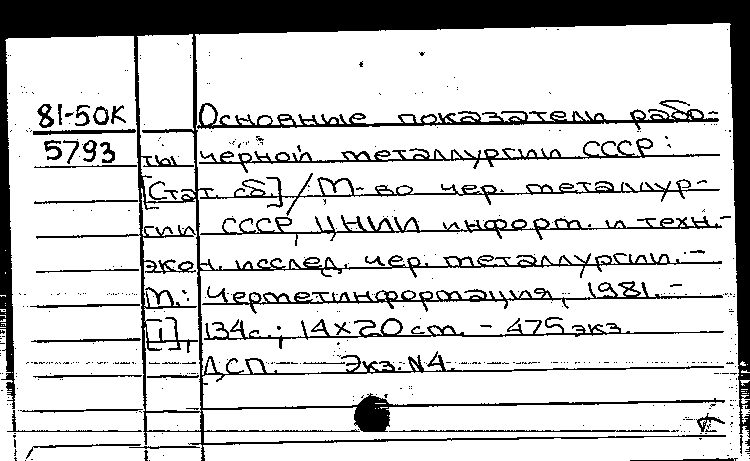 81-50К Основные показатели рабо-
5793 ты черной металлургии СССР:
[Стат. сб.] / М-во чер. металлур-
гии СССР, ЦНИИ информ. и техн.-
экон. исслед. чер. металлургии. -
М.: Черметинформация, 1981. -
[1], 134с.; 14×20 cm. - 475 экз.
ДСП. Экз. N4.